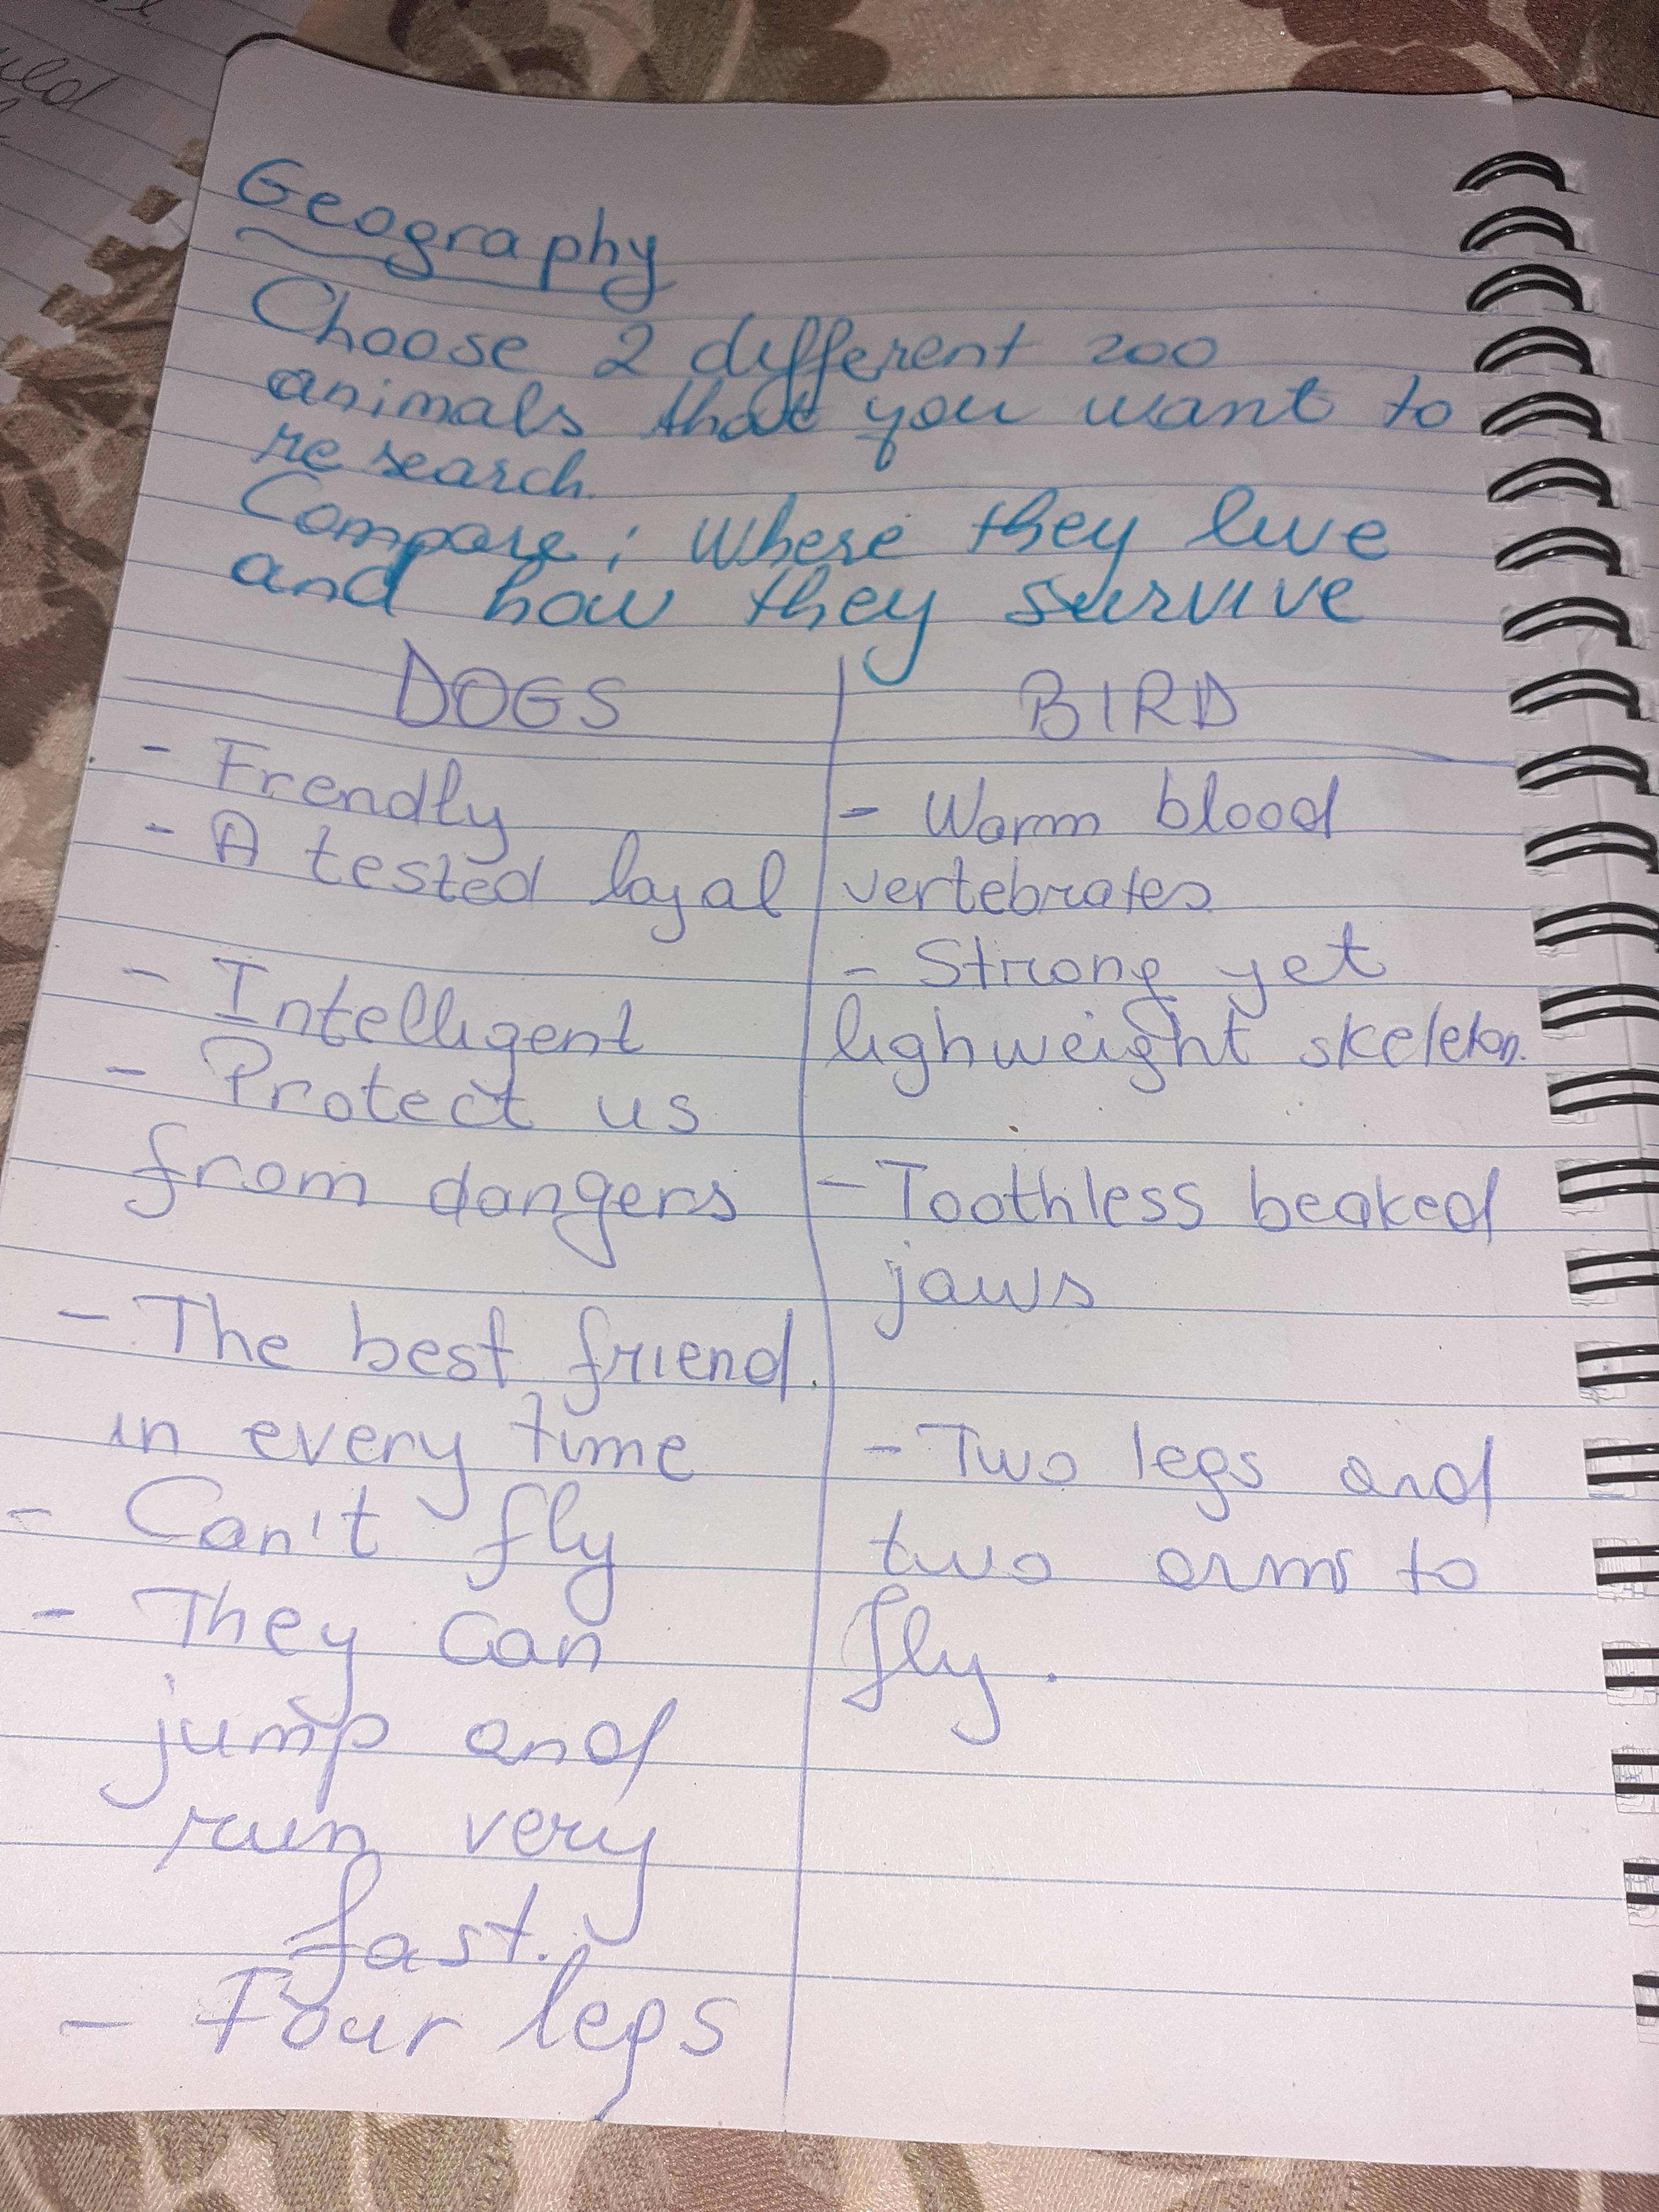 Geography
Choose 2 different zoo
animals that you want to
research.
Compare; Where they live
and how they survive
DOGS
- Frendly
- A tested loyal
- Intelligent
- Protect us
from dangers
- The best friend.
in every time
- Can't fly
- They can
jump and
run very
fast.
- Four legs
BIRD
- Warm blood
vertebrates
- Strong yet
lighweight skeleton.
- Toothless beaked
jaws
- Two legs and
two arms to
fly.